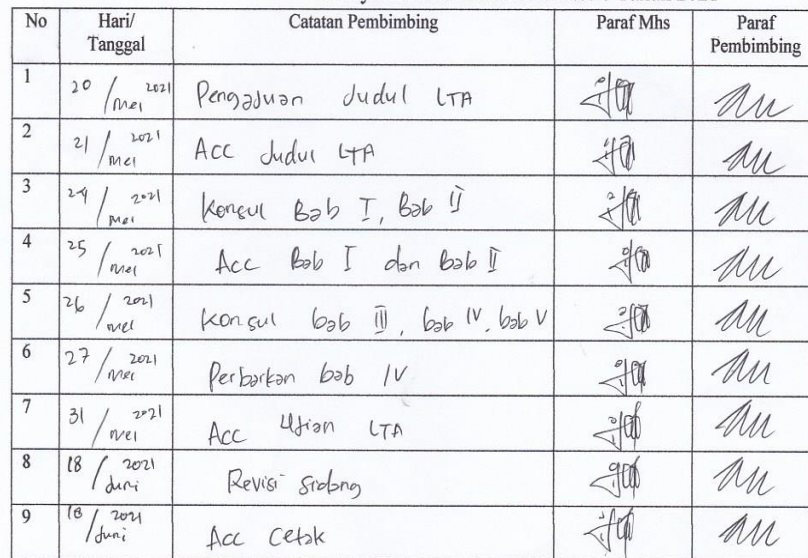 No Hari/ Tanggal Catatan Pembimbing Paraf Mhs Paraf Pembimbing
1 20/Mei 2021 Pengajuan Judul LTA
2 21/Mei 2021 Acc Judul LTA
3 24/Mei 2021 Konsul Bab I, Bab II
4 25/Mei 2021 Acc Bab I dan Bab II
5 26/Mei 2021 Konsul bab III, bab IV, bab V
6 27/Mei 2021 Perbaikan bab IV
7 31/Mei 2021 Acc Ujian LTA
8 18/Juni 2021 Revisi Sidang
9 18/Juni 2021 Acc Cetak